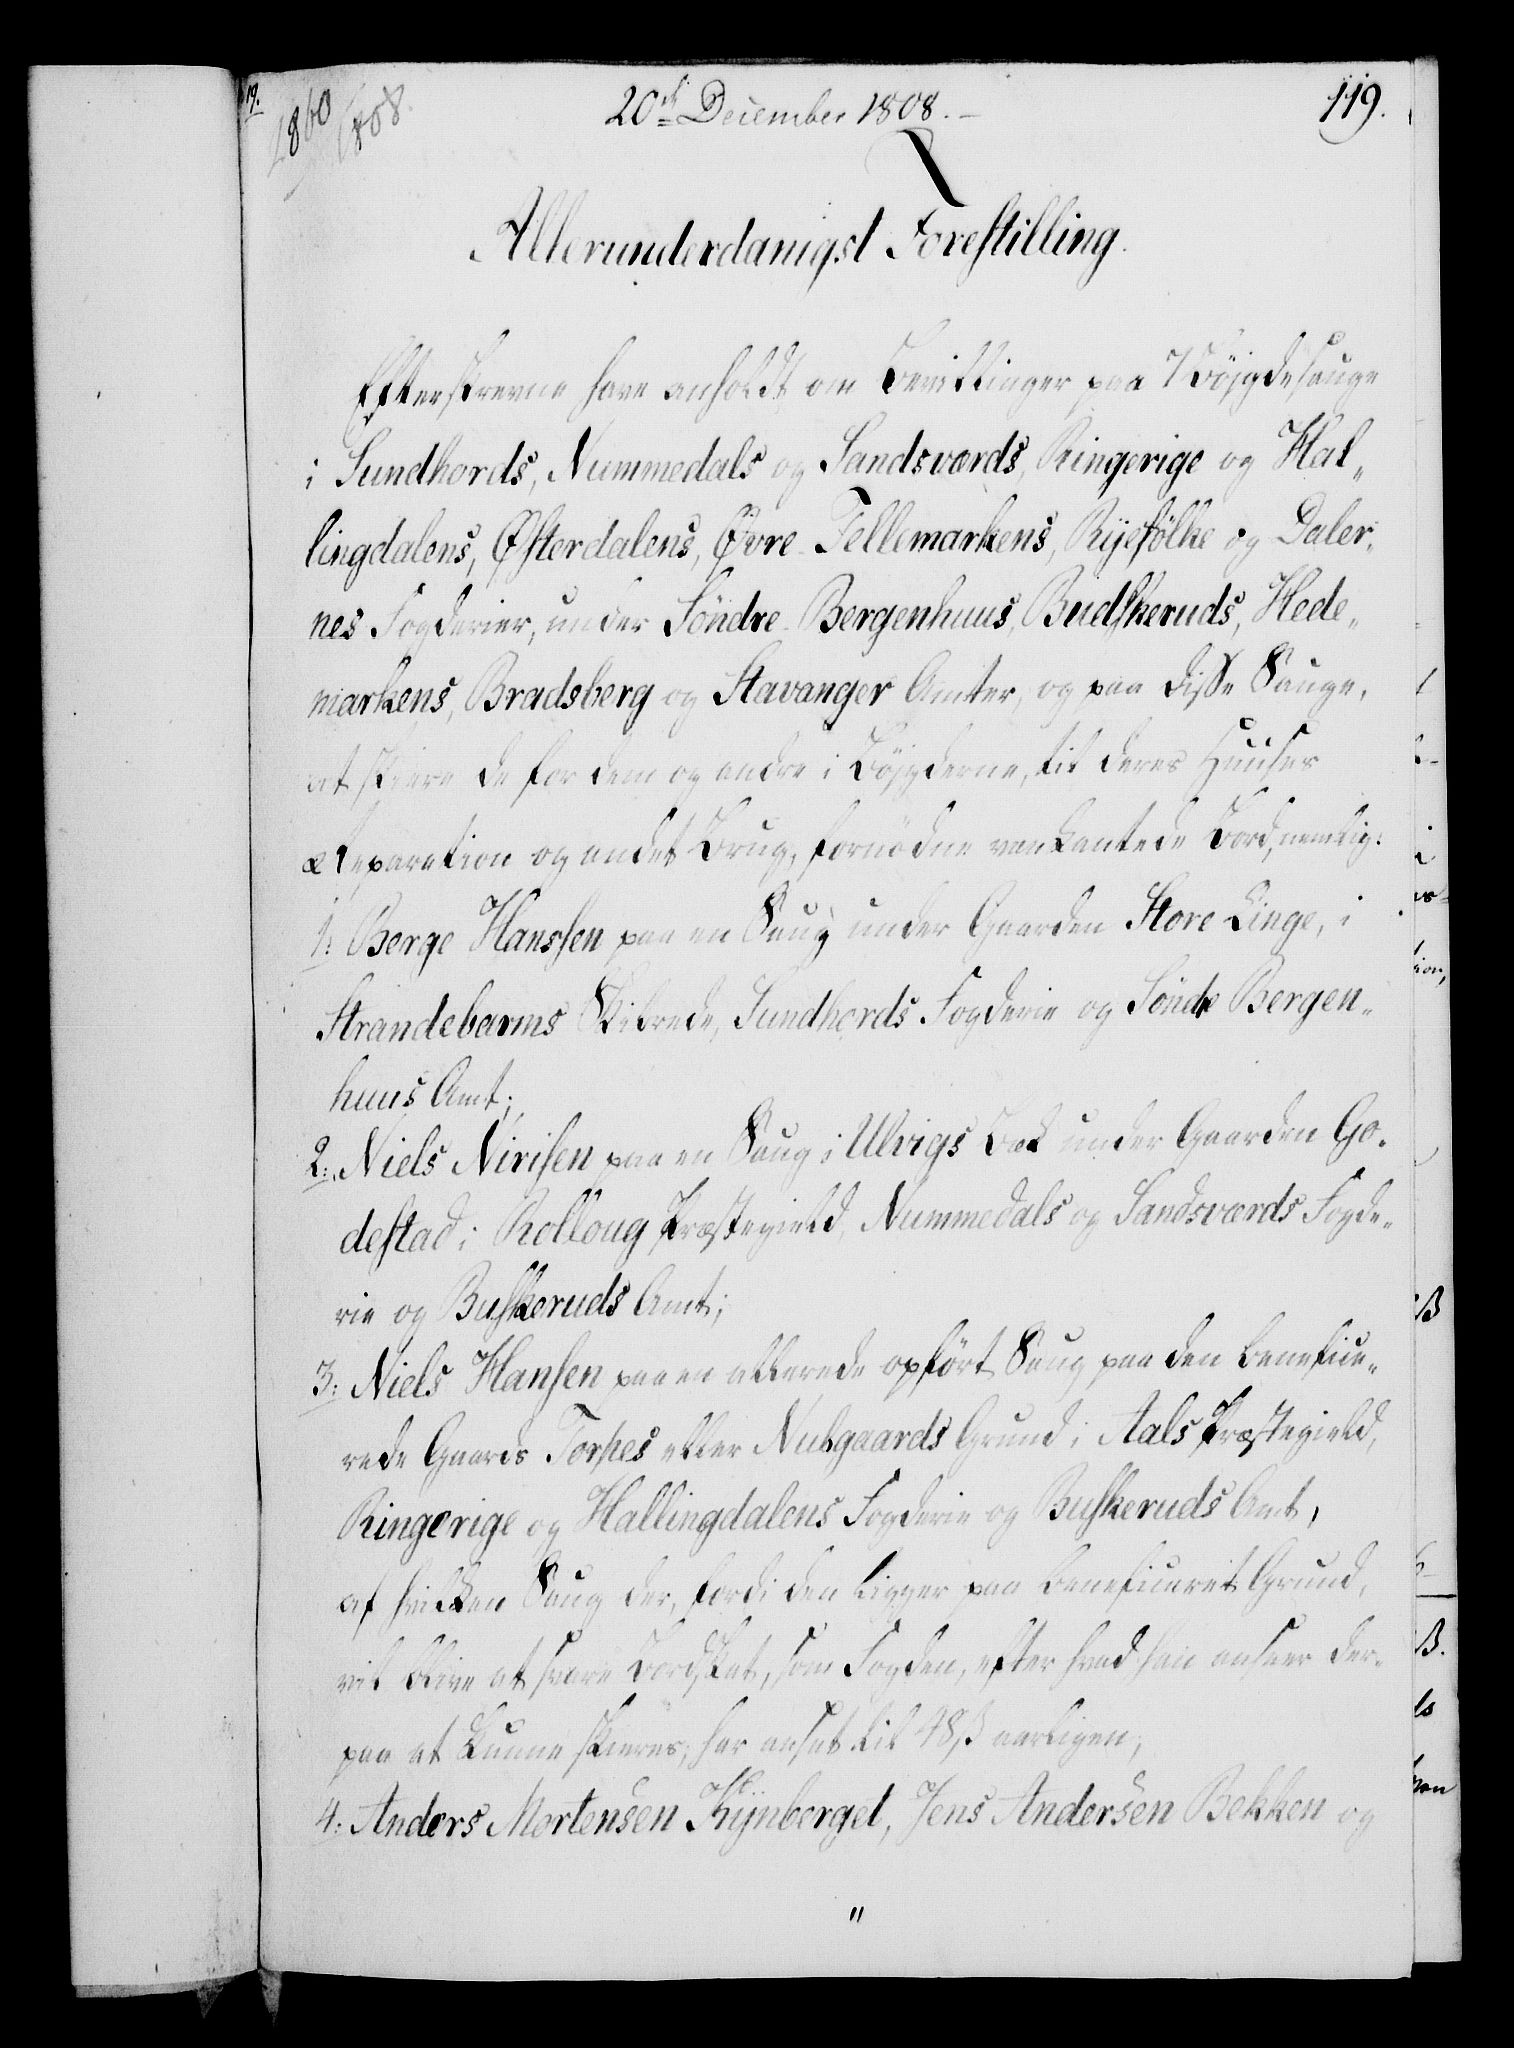 19.
1860
1808.
20de December 1808.
119.
Allerunderdanigst Forestilling.
Efterskrevne have anholdt om Bevillinger paa 7 Bøjgdesauge
i Sundhords, Nummedals og Sandsværds, Ringerige og Hal„
lingdalens, Østerdalens, Øvre-Tellemarkens, Rÿefölke og Daler„
nes Fogderier, under Söndre-Bergenhuus, Budskeruds, Hede„
markens, Bradsberg og Stavanger Amter, og paa disse Sauge,
at skiære de for dem og andre i Böjgderne, til deres Huuses
Reparation og andet Brug, fornödne vankantede Bord, nemlig:
1: Børge Hanssen paa en Saug under Gaarden Store Linge, i
Strandebarms Skibrede, Sundhords Fogderie og Söndre Bergen„
huus Amt;
2: Niels Nirisen paa en Saug i Ulvigs Bæk under Gaarden Go„
destad i Rolloug Præstegield, Nummedals og Sandsværds Fogde„
rie og Buskeruds Amt;
3: Niels Hansen paa en allerede opfört Saug paa den beneficee„
rede Gaards Torpes eller Nubgaards Grund i Aals Præstegield,
Ringerige og Hallingdalens Fogderie og Buskeruds Amt,
af hvilken Saug der, fordi den ligger paa beneficeret Grund,
vil blive at svare Bordskat, som Fogden, efter hvad han anseer der„
paa at kunne skieres, har ansat til 48 ß aarligen;
4: Anders Mortensen Kÿnberget, Jens Andersen Bekken og
"